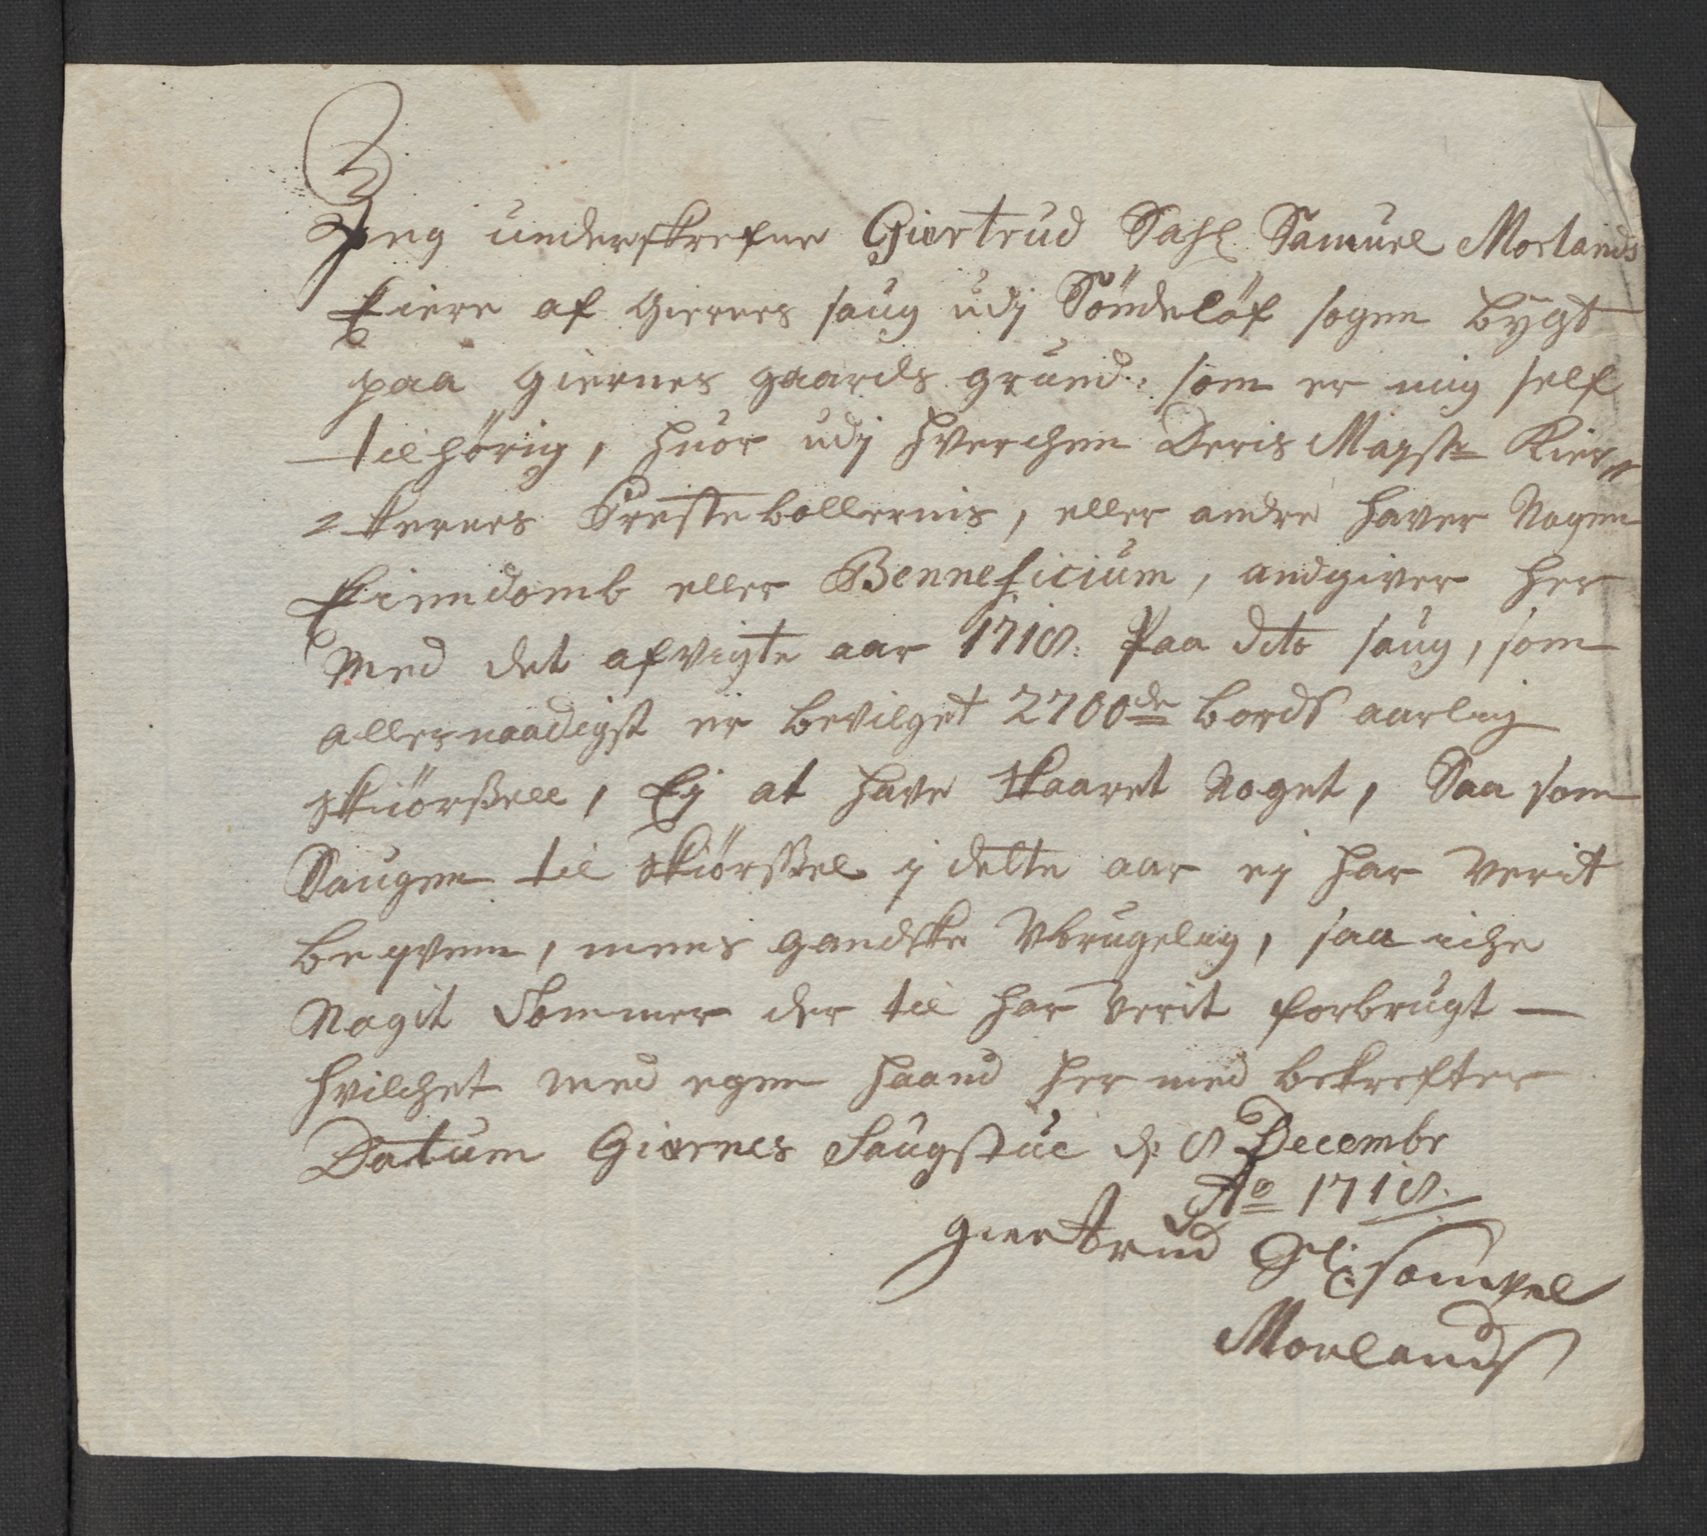 Jeg underskrefne Giertrud Sahl Samuel Morlands
Eiere af Giernes saug udj Söndelöf sogen bÿgt
paa Giernes gaards grund: som er mig self
tilhörig, huor udj hverchen Deris Mayst: Kier
kernes Prestebollernis, eller andre haver Nogen
Eiendomb eller Benneficium, andgiver her
Med det afvigte aar 1718. Paa dito saug, som
allernaadigst er bevilget 2700de bords aarlig
skiörsell, Ej at have skaaret Noget, Saa som
Saugen til skiörssel j dette aar ej har verit
beqvem, mens gandske Vbrugelig, saa iche
Nogit Tømmer der til har verit forbrugt —
hvilchet med egen haand her med bekrefter
Datum Giernes Saugstue d: 8 Decembr
Ao 1718.
giertrud Sl: samvel
Morlands